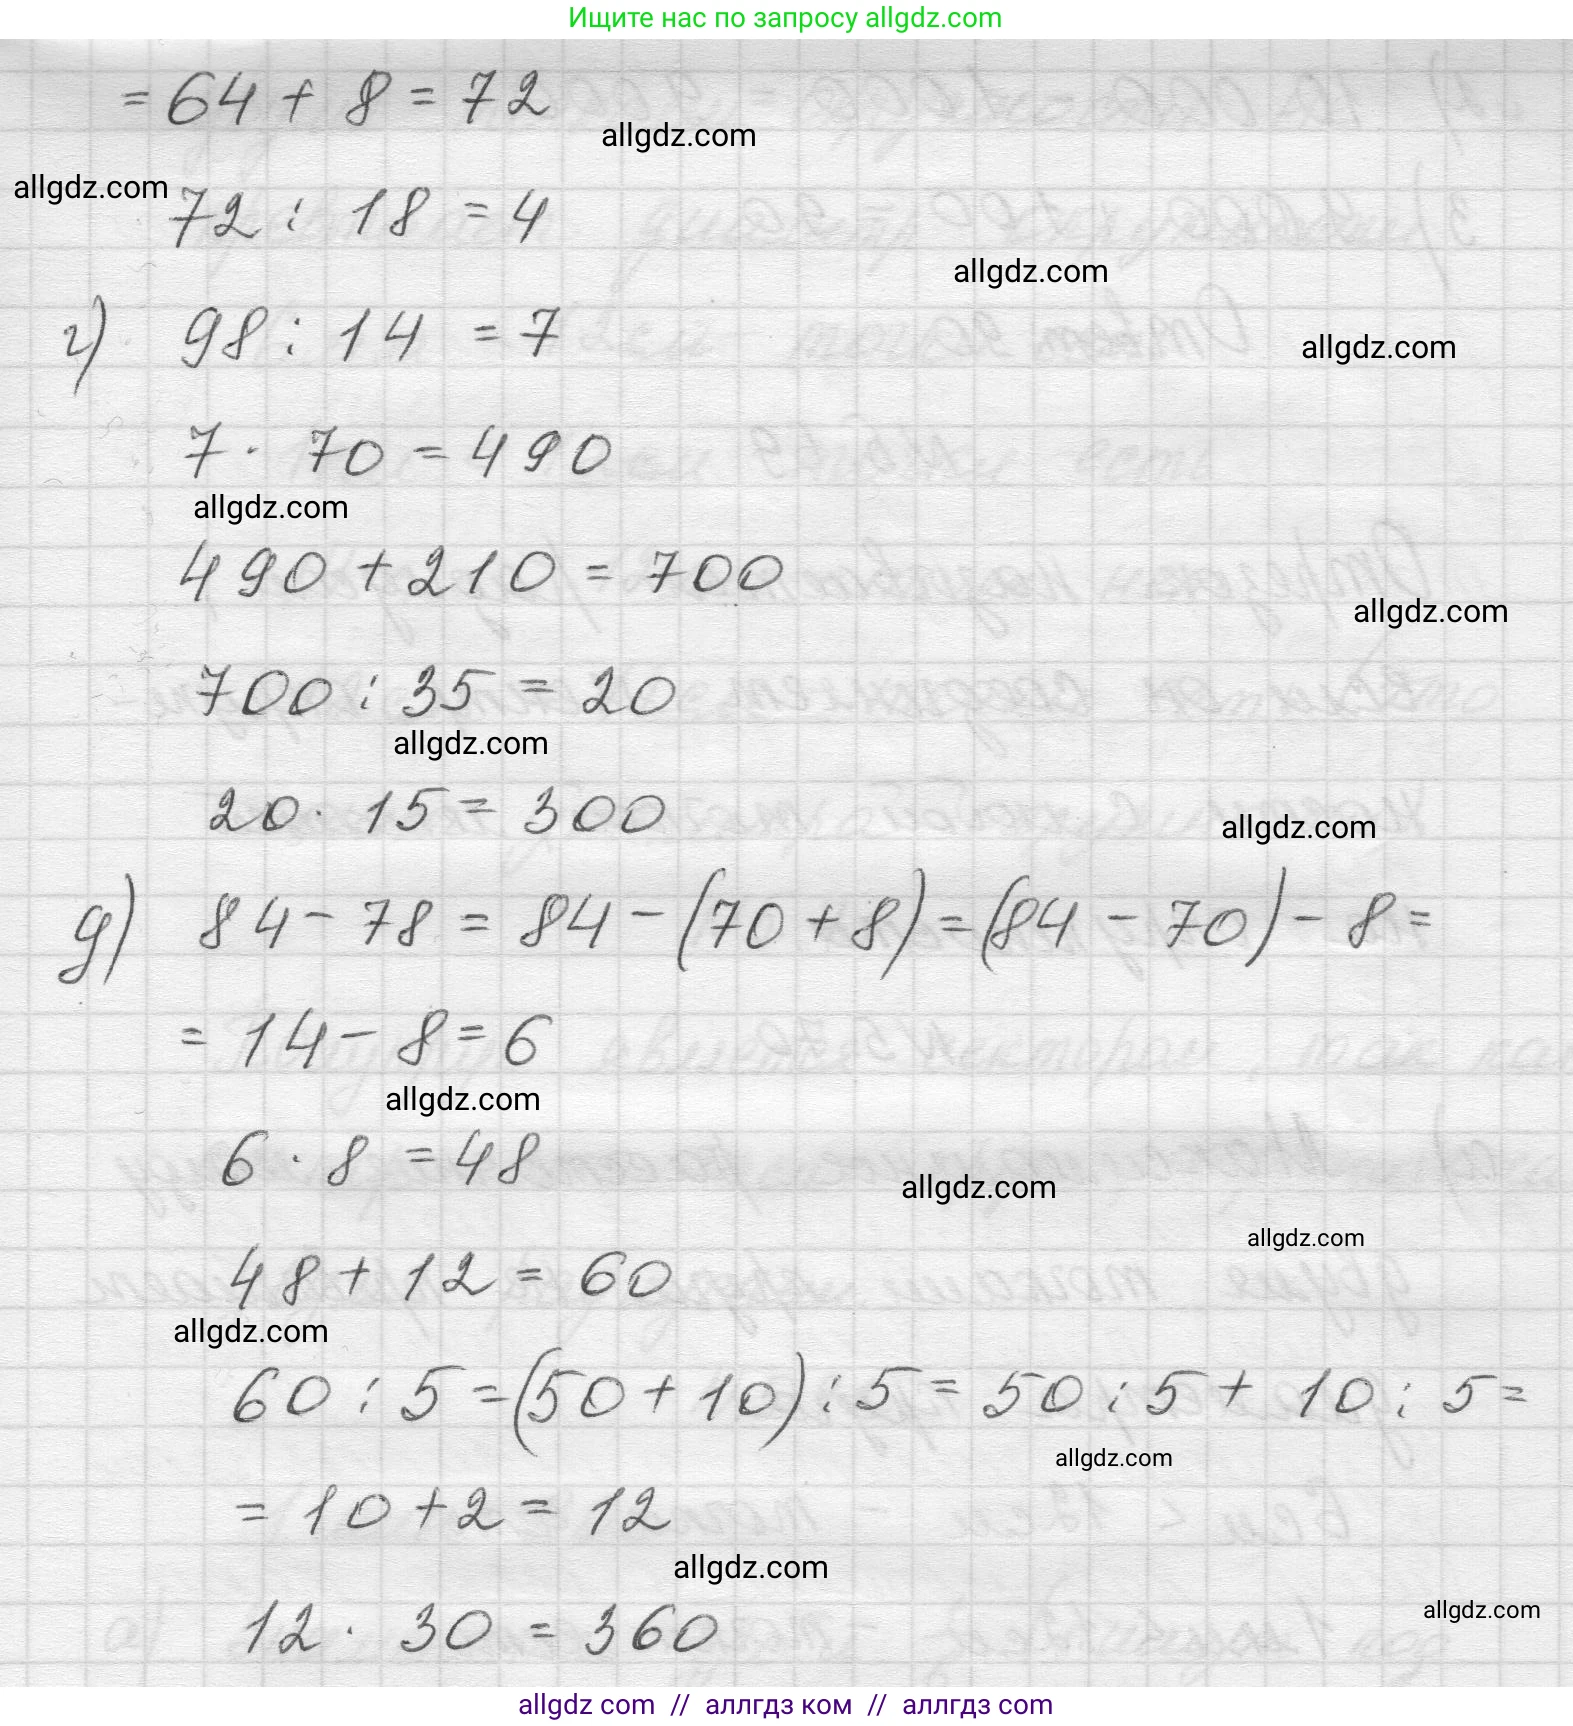 Ищите нас по запросу allgdz.com
= 64 + 8 = 72
allgdz.com
allgdz.com
72 : 18 = 4
allgdz.com
г) 98 : 14 = 7
allgdz.com
7 · 70 = 490
allgdz.com
490 + 210 = 700
allgdz.com
700 : 35 = 20
allgdz.com
20 · 15 = 300
allgdz.com
д) 84 - 78 = 84 - (70 + 8) = (84 - 70) - 8 =
= 14 - 8 = 6
allgdz.com
6 · 8 = 48
allgdz.com
allgdz.com
48 + 12 = 60
allgdz.com
60 : 5 = (50 + 10) : 5 = 50 : 5 + 10 : 5 =
allgdz.com
= 10 + 2 = 12
allgdz.com
allgdz.com
12 · 30 = 360
allgdz com // аллгдз ком // аллгдз com